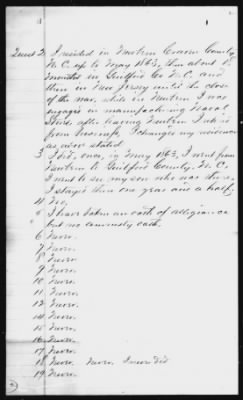 Quest 2. I resided in Newbern Craven County
N.C. up to May 1863, then about 18
months in Guilford Co N.C. and
then in New Jersey until the close
of the war, while in Newbern I was
engaged in manufacturing Naval
Store, after leaving Newbern I did
from business, I changed my residence
as above stated
3 I did, once, in May 1863, I went from
Newbern to Guilford County, N.C.
I went to see my son who was there,
I stayed there one year and a half,
4 No,
5 I have taken an oath of allegiance
but no amnesty oath.
6 Never.
7 Never.
8 Never
9 Never.
10 Never.
11 Never.
12 Never.
14 Never.
15 Never.
16 Never.
17 Never.
18 Never. Never I never did
19 Never.